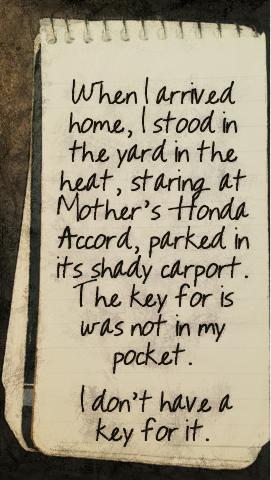 When I arrived
home, I stood in
the yard in the
heat, staring at
Mother's Honda
Accord, parked in
its shady carport.
The key for is
was not in my
pocket.
I don't have a
key for it.